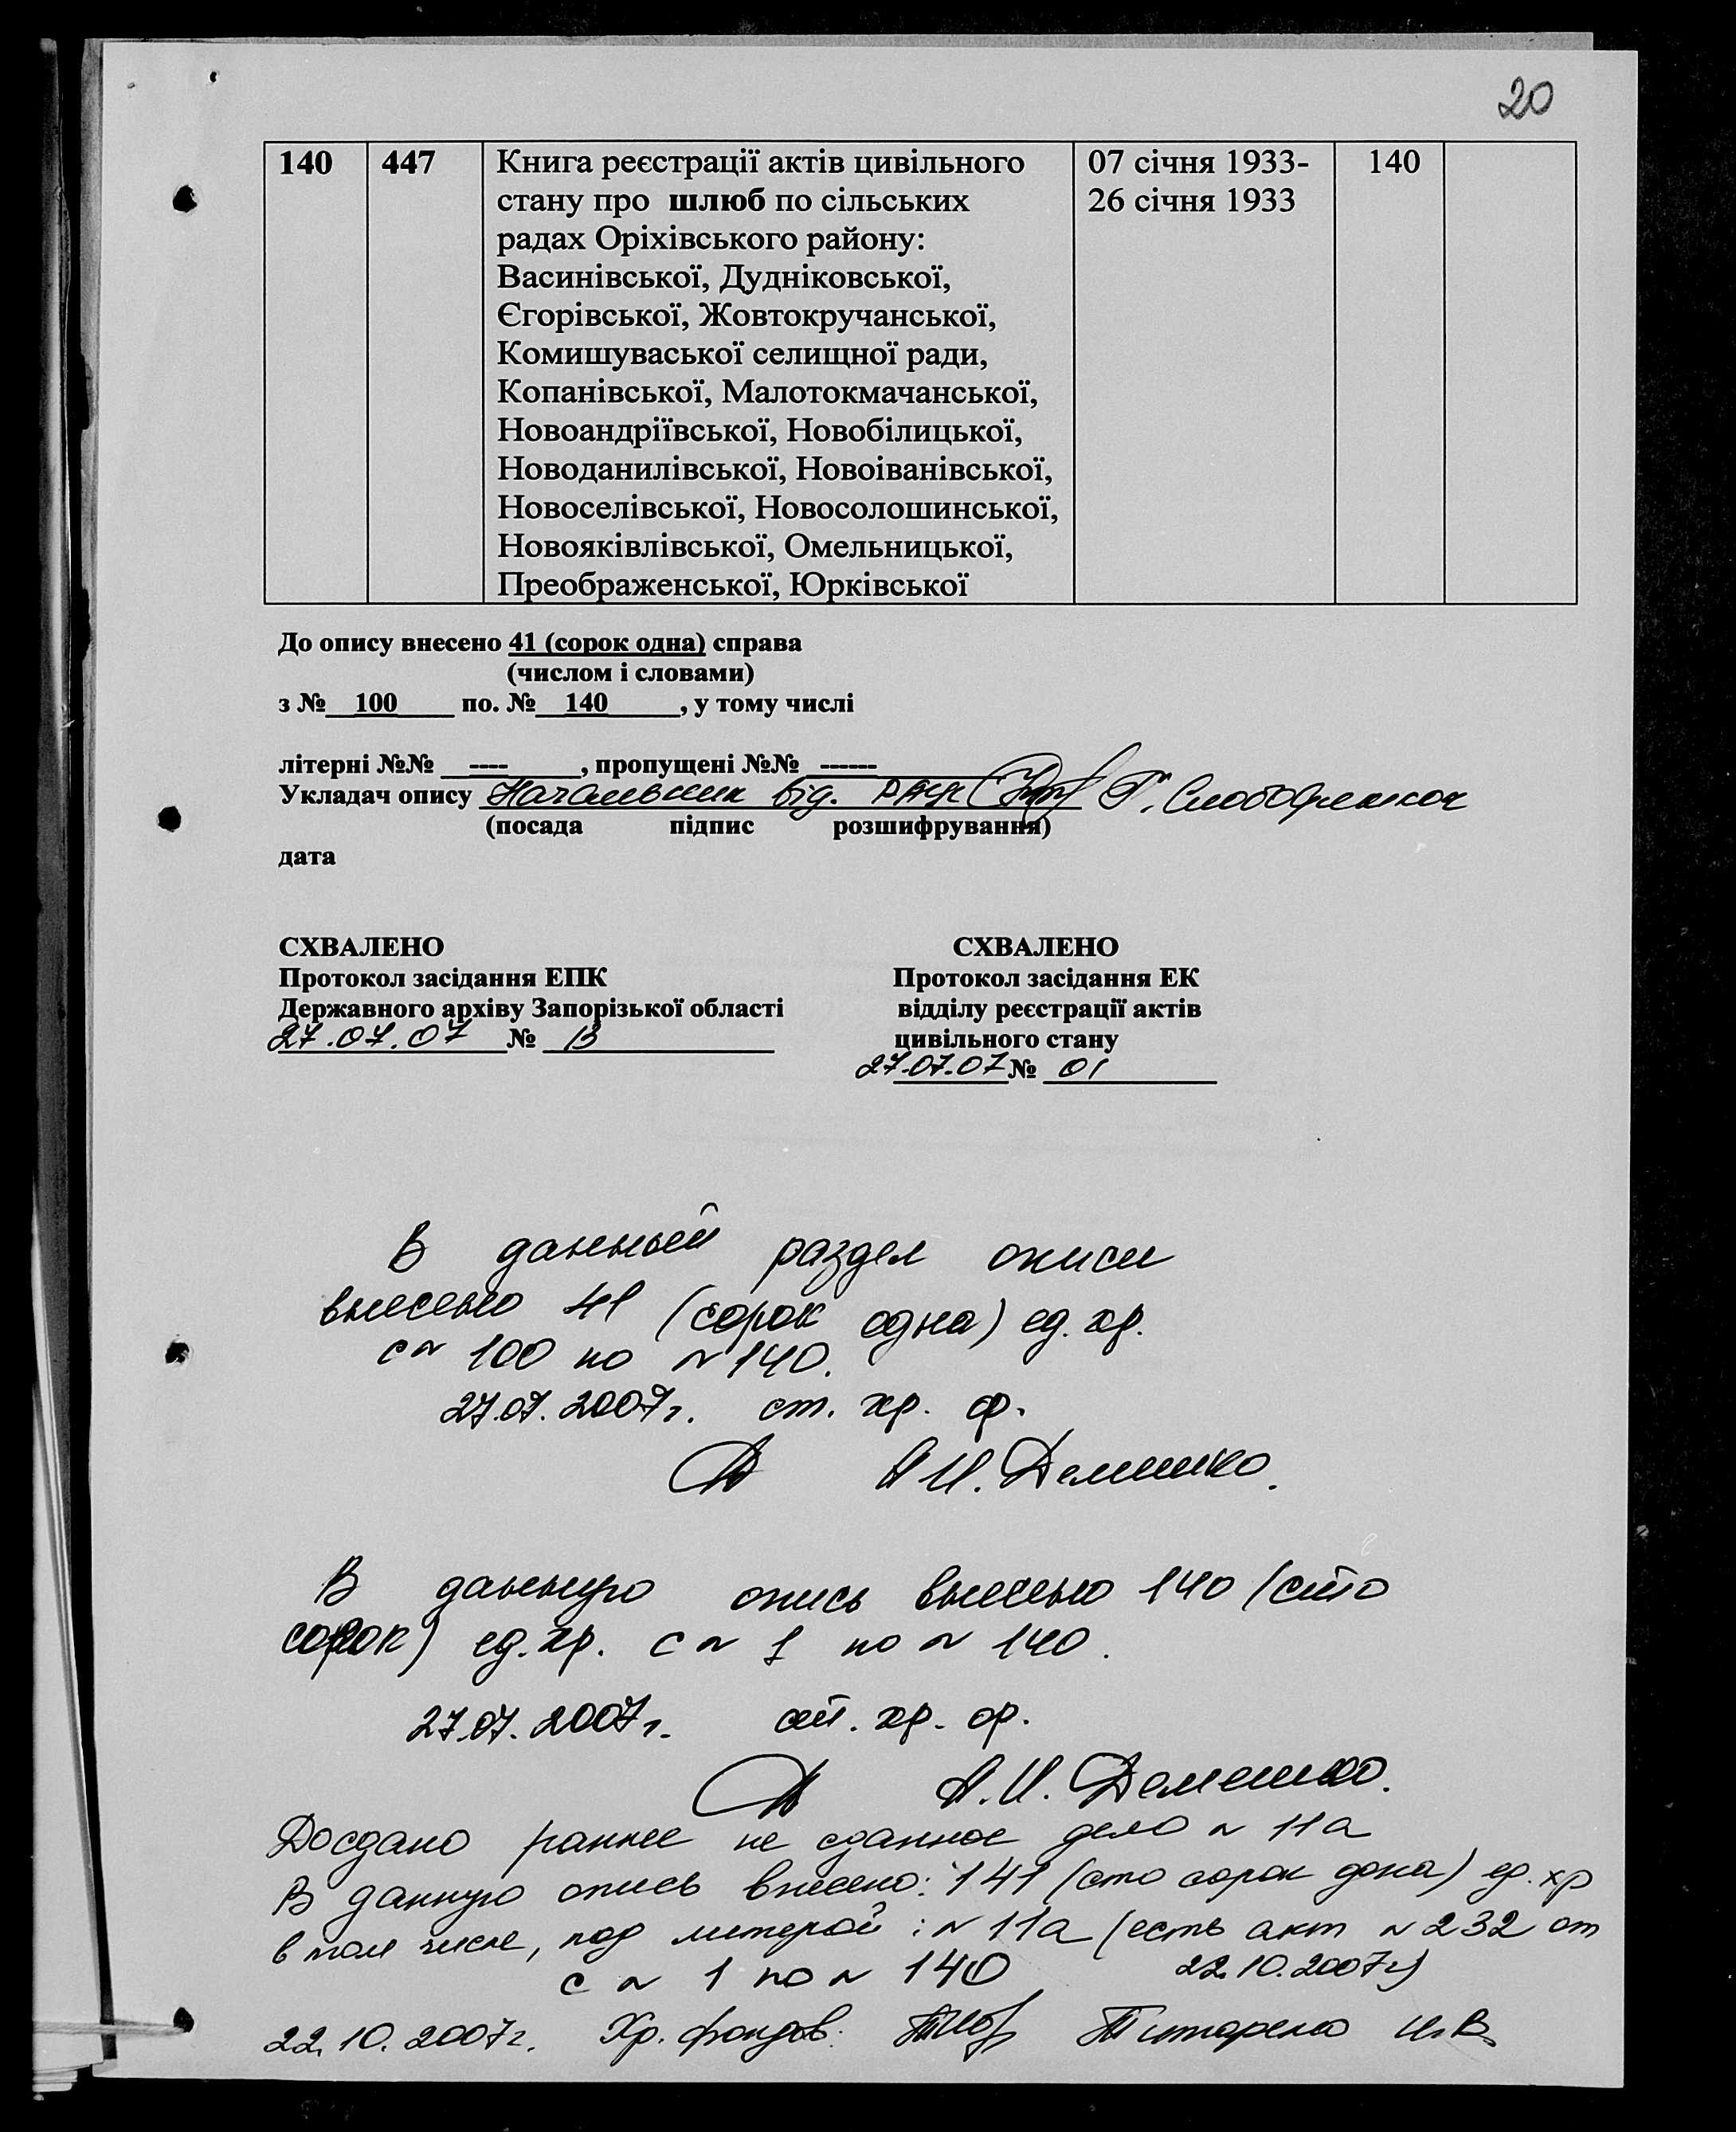 20
140 447 Книга реєстрації актів цивільного 07 січня 1933- 140
стану про шлюб по сільських 26 січня 1933
радах Оріхівського району:
Васинівської, Дудніковської,
Єгорівської, Жовтокручанської,
Комишуваської селищної ради,
Копанівської, Малотокмачанської,
Новоандріївської, Новобілицької,
Новоданилівської, Новоіванівської,
Новоселівської, Новосолошинської,
Новояківлівської, Омельницької,
Преображенської, Юрківської
До опису внесено 41 (сорок одна) справа
(числом і словами)
з №__100____ по. №__140_____, у тому числі
літерні №№ __----_____, пропущені №№ _------
Укладач опису Начальник від. РАЦС Г.
(посада підпис розшифрування)
дата
СХВАЛЕНО СХВАЛЕНО
Протокол засідання ЕПК Протокол засідання ЕК
Державного архіву Запорізької області відділу реєстрації актів
27.07.07 № цивільного стану
27.07.07 № 01
В данный раздел описи
внесено 41 (сорок одна) ед. хр.
с № 100 по № 140.
27.07.2007г. ст. хр. ф.
А.И. Демешко.
В данную опись внесено 140 (сто
сорок) ед. хр. с № 1 по № 140.
27.07.2007г. ст. хр. ф.
А.И. Демешко.
Досдано раннее не сданное дело № 11а
В данную опись внесено: 141 (сто сорок одна) ед. хр
в том числе, под литерой: № 11а (есть акт № 232 от
с № 1 по № 140 22.10.2007г)
22.10.2007г. Хр. фондов: Титаренко И.В.